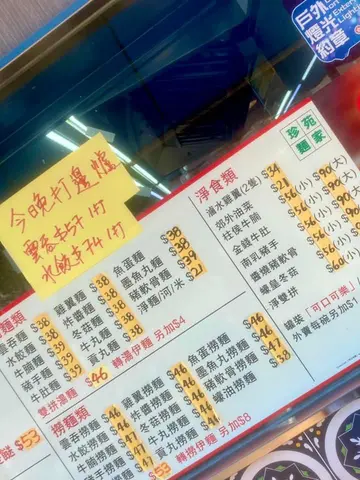 戶外
燈光
約章
今晚打邊爐
雲吞 $57 1打
水餃 $74 1打
珍苑
麵家
淨食類
滷水雞翼(2隻) $34
郊外油菜 $21
柱侯牛腩 $56(小) $90(大)
金錢牛肚 $56(小) $90(大)
南乳豬手 $56(小) $90(大)
醬爆豬軟骨 $56(小) $90(大)
蠔皇冬菇
淨雙拼
罐裝「可口可樂」
外賣每碗另加$
魚蛋麵 $38
墨魚丸麵 $38
豬軟骨麵 $39
淨麵/河/米 $21
雞翼麵 $38
炸醬麵 $38
冬菇麵 $38
牛丸麵 $38
貢丸麵 $38
麵類
雲吞麵 $38
水餃麵 $38
牛腩麵 $39
豬手麵 $39
牛肚麵 $39
雙拼湯麵 $46
轉湯伊麵 另加$4
撈麵類
雲吞撈麵 $46
水餃撈麵 $46
牛腩撈麵 $47
豬手撈麵 $47
$53
雞翼撈麵 $46
炸醬撈麵 $46
冬菇撈麵 $46
牛丸撈麵 $46
貢丸撈麵 $46
魚蛋撈麵 $46
墨魚丸撈麵 $46
豬軟骨撈麵 $47
蠔油撈麵 $38
轉撈伊麵 另加$8
$53